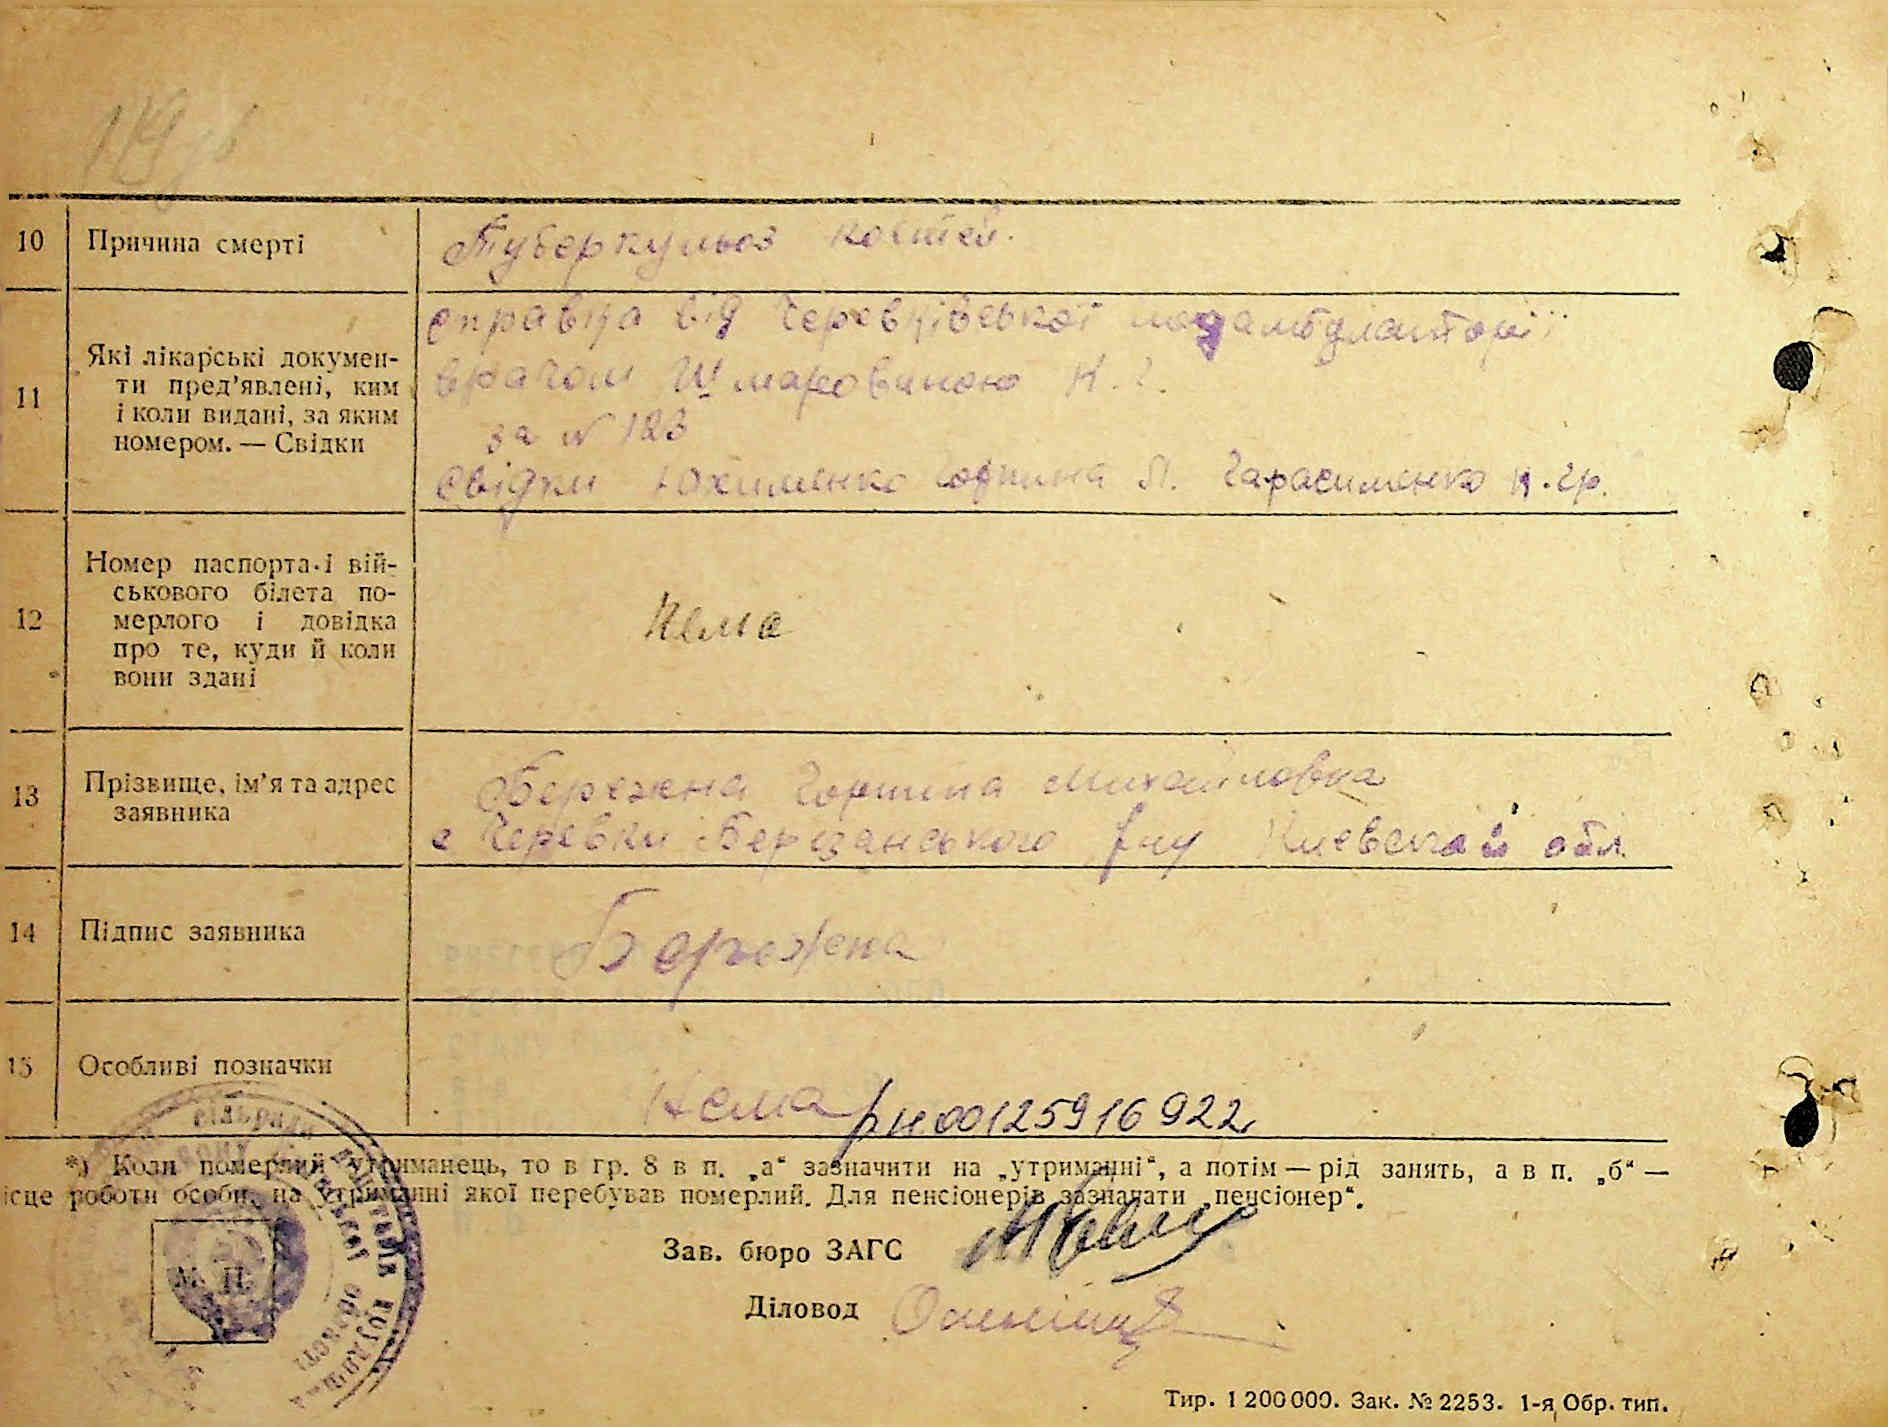 10 Причина смерті Туберкульоз костей.
справка від Черевківської
11 Які лікарські докумен-
ти пред’явлені, ким
і коли видані, за яким
номером. — Свідки
врачом Шмаровиною К. Г.
за № 123
Свідки Юхименко Горпина П. Гарасименко К. Гр.
12 Номер паспорта і вій-
ськового білета по-
мерлого і довідка
про те, куди й коли
вони здані
Нема
13 Прізвище, ім’я та адрес
заявника
Бережна Горпина Михайловка
с Черевки Березанського р-ну Киевской обл
14 Підпис заявника Бережна
15 Особливі позначки Нема
рн00125916922
*) Коли померлий утриманець, то в гр. 8 в п. „а“ зазначити на „утриманні“, а потім — рід занять, а в п. „б“ —
ісце роботи особи, на утриманні якої перебував померлий. Для пенсіонерів зазначати „пенсіонер“.
Зав. бюро ЗАГС
М. П.
Діловод
Тир. 1 200 000. Зак. № 2253. 1-я Обр. тип.